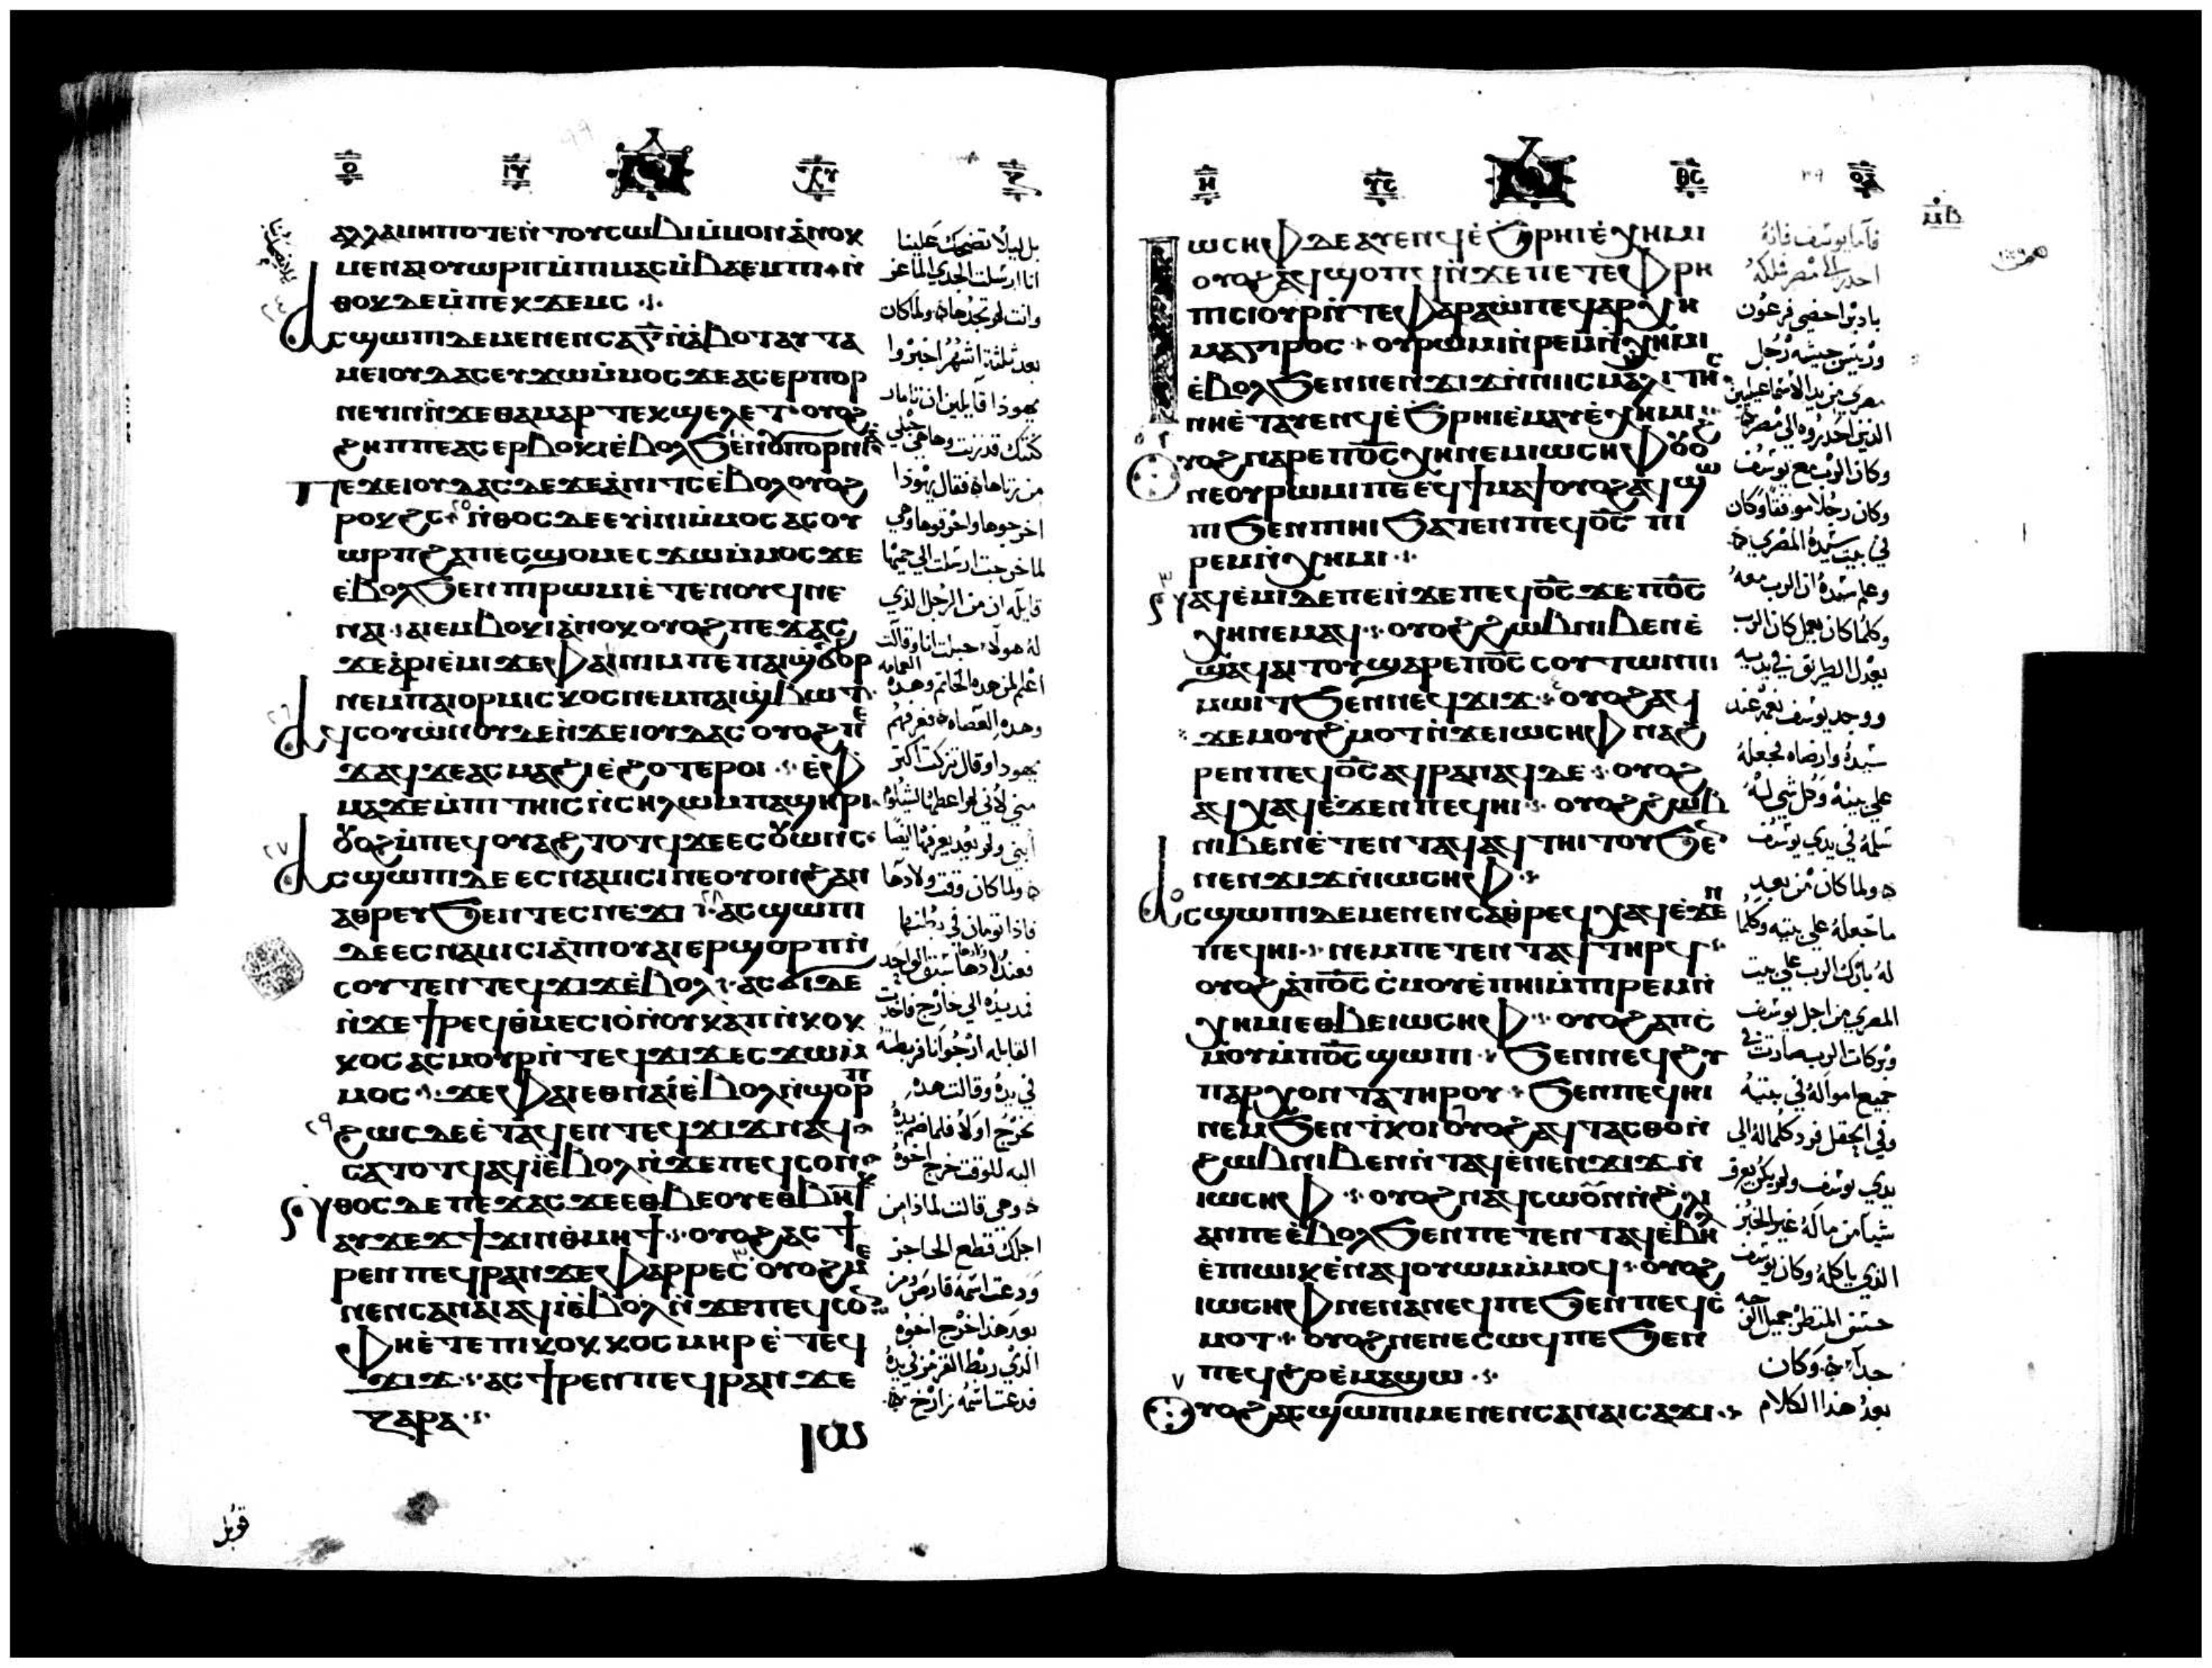 ⲁⲗⲗⲁ ⲙⲏⲡⲟⲧⲉ ⲛ̀ⲧⲟⲩⲥⲱⲃⲓ ⲙ̀ⲙⲟⲛ ⲁ̀ⲛⲟⲕ
ⲙⲉⲛ ⲁⲓⲟⲩⲱⲣⲡ ⲙ̀ⲡⲓⲙⲁⲥ ⲙ̀ⲃⲁⲉⲙⲡⲓ ⲛ̀
ⲑⲟⲕ ⲇⲉ ⲙ̀ⲡⲉⲕϫⲉⲙⲥ
ⲁⲥϣⲱⲡⲓ ⲇⲉ ⲙⲉⲛⲉⲛⲥⲁ ⲅ̅ ⲛ̀ⲁ̀ⲃⲟⲧ ⲁⲩⲧⲁ
ⲙⲉ ⲓⲟⲩⲇⲁⲥ ⲉⲩϫⲱ ⲙ̀ⲙⲟⲥ ϫⲉ ⲁⲥⲉⲣⲡⲟⲣ
ⲛⲉⲩⲓⲛ ⲛ̀ϫⲉ ⲑⲁⲙⲁⲣ ⲧⲉⲕϣⲉⲗⲉⲧ ⲟⲩⲟϩ
ϩⲏⲡⲡⲉ ⲁⲥⲉⲣⲃⲟⲕⲓ ⲉ̀ⲃⲟⲗ ϧⲉⲛ ⲟⲩⲡⲟⲣⲛⲓⲁ
ⲡⲉϫⲉ ⲓⲟⲩⲇⲁⲥ ⲇⲉ ϫⲉ ⲁ̀ⲛⲓⲧⲥ ⲉ̀ⲃⲟⲗ ⲟⲩⲟϩ
ⲣⲟⲕϩⲥ ⲛ̀ⲑⲟⲥ ⲇⲉ ⲉⲩⲓ̀ⲛⲓ ⲙ̀ⲙⲟⲥ ⲁⲥⲟⲩ
ⲱⲣⲡ ϩⲁ ⲡⲉⲥϣⲟⲙ ⲉⲥϫⲱ ⲙ̀ⲙⲟⲥ ϫⲉ
ⲉ̀ⲃⲟⲗ ϧⲉⲛ ⲡⲓⲣⲱⲙⲓ ⲉ̀ⲧⲉ ⲛⲟⲩϥ ⲛⲉ
ⲛⲁⲓ ⲁⲓⲉⲙⲃⲟⲕⲓ ⲁ̀ⲛⲟⲕ ⲟⲩⲟϩ ⲡⲉϫⲁⲥ
ϫⲉ ⲁ̀ⲣⲓⲉ̀ⲙⲓ ϫⲉ ⲫⲁ ⲛⲓⲙ ⲡⲉ ⲡⲁⲓϣ̀ϭⲟⲩⲣ
ⲛⲉⲙ ⲡⲁⲓⲟⲣⲙⲓⲥⲕⲟⲥ ⲛⲉⲙ ⲡⲁⲓϣ̀ⲃⲱⲧ
ⲁϥⲥⲟⲩⲱⲛⲟⲩ ⲇⲉ ⲛ̀ϫⲉ ⲓⲟⲩⲇⲁⲥ ⲟⲩⲟϩ ⲡⲉ
ϫⲁϥ ϫⲉ ⲁⲥⲙⲁϩⲓ ⲉ̀ϩⲟⲧⲉⲣⲟⲓ ⲉ̀ⲫ
ⲙⲁ ϫⲉ ⲙ̀ⲡⲓⲧⲏⲓⲥ ⲛ̀ⲥⲏⲗⲱⲙ ⲡⲁϣⲏⲣⲓ
ⲟⲩⲟϩ ⲙ̀ⲡⲉϥⲟⲩⲁϩⲧⲟⲧϥ ϫⲉ ⲉⲥⲟⲩⲱⲛⲥ
ⲁⲥϣⲱⲡⲓ ⲇⲉ ⲉⲥⲛⲁⲙⲓⲥⲓ ⲛⲉ ⲟⲩⲟⲛ ϩⲁⲛ
ⲁⲑⲣⲉⲩ ϧⲉⲛ ⲧⲉⲥⲛⲉϫⲓ ⲁⲥϣⲱⲡⲓ
ⲇⲉ ⲉⲥⲛⲁⲙⲓⲥⲓ ⲁ̀ ⲡⲓⲟⲩⲁⲓ ⲉⲣϣⲟⲣⲡ ⲛ̀
ⲥⲟⲩⲧⲉⲛ ⲧⲉϥϫⲓϫ ⲉ̀ⲃⲟⲗ ⲁⲥϭⲓ ⲇⲉ
ⲛ̀ϫⲉ ϯⲣⲉϥⲑ̀ⲙⲉⲥⲓⲟ̀ ⲛ̀ⲟⲩⲕⲁⲡ ⲛ̀ⲕⲟⲕ
ⲕⲟⲥ ⲁⲥⲙⲟⲩⲣ ⲛ̀ⲧⲉϥϫⲓϫ ⲉⲥϫⲱ ⲙ̀
ⲙⲟⲥ ϫⲉ ⲫⲁⲓ ⲉⲑⲛⲁⲓ̀ ⲉ̀ⲃⲟⲗ ⲛ̀ϣⲟⲣⲡ
ϩⲱⲥ ⲇⲉ ⲉ̀ⲧⲁϥⲉⲛ ⲧⲉϥϫⲓϫ ⲛⲁϥ
ⲥⲁⲧⲟⲧϥ ⲁϥⲓ̀ ⲉ̀ⲃⲟⲗ ⲛ̀ϫⲉ ⲡⲉϥⲥⲟⲛ ⲛ̀
ⲑⲟⲥ ⲇⲉ ⲡⲉϫⲁⲥ ϫⲉ ⲉⲑⲃⲉ ⲟⲩ ⲉⲑⲃⲏⲧⲕ
ⲁⲩϫⲉϫ ϯϫⲓⲛⲑⲙⲏϯ ⲟⲩⲟϩ ⲁⲥϯ
ⲣⲉⲛ ⲡⲉϥⲣⲁⲛ ϫⲉ ⲫⲁⲣⲣⲉⲥ ⲟⲩⲟϩ ⲙⲉ
ⲛⲉⲛⲥⲁ ⲛⲁⲓ ⲁϥⲓ̀ ⲉ̀ⲃⲟⲗ ⲛ̀ϫⲉ ⲡⲉϥⲥⲟⲛ
ⲫⲏ ⲉ̀ⲧⲉ ⲡⲓⲕⲟⲕⲕⲟⲥ ⲙⲏⲣ ⲉ̀ⲧⲉϥ
ϫⲓϫ ⲁⲥϯⲣⲉⲛ ⲡⲉϥⲣⲁⲛ ϫⲉ
ⲍⲁⲣⲁ
بل ليلا تضحك علينا
انا ارسلت الجدي الماعز
وانت لم تجدها ولما كان
بعد ثلثة اشهر اخبروا
يهوذا قايلين ان تامار
كنتك قد زنت وها هي حبلى
من زناها فقال يهوذا
اخرجوها واحرقوها وهي
لما خرجت ارسلت الى حميها
قايلة ان من الرجل الذي
له هولاء حبلت انا وقالت
اعلم لمن هذه الخاتم وهذه العمامه
وهذه العصاه فعرفهم
يهوذا وقال تزكت اكثر
مني لاني لم اعطها لشيلوم
ابني ولم يعد يعرفها ايضا
ولما كان وقت ولادها
فاذا تومان في بطنها
فعند ولادها سبق الواحد
فمد يده الى خارج فاخذت
القابله ارجوانا فربطته
في يده وقالت هذه
يخرج اولا فلما ضم يده
اليه للوقت خرج اخوه
وهي قالت لماذا من
اجلك قطع الحاجز
ودعت اسمه فارص ومن
بعد هذا خرج اخوه
الذي ربط القرمز في يده
فدعت اسمه زارح
قوبل
ⲓⲱⲥⲏⲫ ⲇⲉ ⲁⲩⲉⲛϥ ⲉ̀ϧⲣⲏⲓ ⲉ̀ⲭⲏⲙⲓ
ⲟⲩⲟϩ ⲁϥϣⲟⲡϥ ⲛ̀ϫⲉ ⲡⲉⲧⲉⲫⲣⲏ
ⲡⲓⲥⲓⲟⲩⲣ ⲛ̀ⲧⲉ ⲫⲁⲣⲁⲱ̀ ⲡⲉϥⲁⲣⲭⲏ
ⲙⲁⲅⲓⲣⲟⲥ ⲟⲩⲣⲱⲙⲓ ⲛ̀ⲣⲉⲙⲛ̀ⲭⲏⲙⲓ
ⲉ̀ⲃⲟⲗ ϧⲉⲛ ⲛⲉⲛϫⲓϫ ⲛ̀ⲛⲓⲓⲥⲙⲁⲏⲗⲓⲧⲏⲥ
ⲛⲏ ⲉ̀ⲧⲁⲩⲉⲛϥ ⲉ̀ϧⲣⲏⲓ ⲉ̀ⲙⲁⲩ ⲉ̀ⲭⲏⲙⲓ
ⲟⲩⲟϩ ⲛⲁⲣⲉ ⲡⲟ̅ⲥ̅ ⲭⲏ ⲛⲉⲙ ⲓⲱⲥⲏⲫ ⲟⲩⲟϩ
ⲛⲉ ⲟⲩⲣⲱⲙⲓ ⲡⲉ ⲉϥϯⲙⲁϯ ⲟⲩⲟϩ ⲁϥϣⲱ
ⲡⲓ ϧⲉⲛ ⲡⲓⲏⲓ ϧⲁⲧⲉⲛ ⲡⲉϥⲟ̅ⲥ̅ ⲡⲓ
ⲣⲉⲙⲛ̀ⲭⲏⲙⲓ
ⲛⲁϥⲉ̀ⲙⲓ ⲇⲉ ⲡⲉ ⲛ̀ϫⲉ ⲡⲉϥⲟ̅ⲥ̅ ϫⲉ ⲡⲟ̅ⲥ̅
ⲭⲏ ⲛⲉⲙⲁϥ ⲟⲩⲟϩ ϩⲱⲃ ⲛⲓⲃⲉⲛ ⲉ̀
ϣⲁϥⲁⲓⲧⲟⲩ ϣⲁⲣⲉ ⲡⲟ̅ⲥ̅ ⲥⲟⲩⲧⲱⲛ ⲡⲓ
ⲙⲱⲓⲧ ϧⲉⲛ ⲛⲉϥϫⲓϫ ⲟⲩⲟϩ ⲁϥ
ϫⲉⲙ ⲟⲩϩⲙⲟⲧ ⲛ̀ϫⲉ ⲓⲱⲥⲏⲫ ⲛⲁϩ
ⲣⲉⲛ ⲡⲉϥⲟ̅ⲥ̅ ⲁϥⲣⲁⲛⲁϥ ⲇⲉ ⲟⲩⲟϩ
ⲁϥⲭⲁϥ ⲉ̀ϫⲉⲛ ⲡⲉϥⲏⲓ ⲟⲩⲟϩ ϩⲱⲃ
ⲛⲓⲃⲉⲛ ⲉ̀ⲧⲉⲛⲧⲁϥ ⲁϥⲧⲏⲓⲧⲟⲩ ϧⲉⲛ
ⲛⲉⲛϫⲓϫ ⲛ̀ⲓⲱⲥⲏⲫ
ⲁⲥϣⲱⲡⲓ ⲇⲉ ⲙⲉⲛⲉⲛⲥⲁ ⲑ̀ⲣⲉϥⲭⲁϥ ⲉ̀ϫⲉⲛ
ⲡⲉϥⲏⲓ ⲛⲉⲙ ⲡⲉⲧⲉⲛⲧⲁϥ ⲧⲏⲣϥ
ⲟⲩⲟϩ ⲁ̀ ⲡⲟ̅ⲥ̅ ⲥ̀ⲙⲟⲩ ⲉ̀ⲡⲏⲓ ⲙ̀ⲡⲓⲣⲉⲙⲛ̀
ⲭⲏⲙⲓ ⲉⲑⲃⲉ ⲓⲱⲥⲏⲫ ⲟⲩⲟϩ ⲁ ⲡⲥ̀
ⲙⲟⲩ ⲙ̀ⲡⲟ̅ⲥ̅ ϣⲱⲡⲓ ϧⲉⲛ ⲛⲉϥϩⲩ
ⲡⲁⲣⲭⲟⲛⲧⲁ ⲧⲏⲣⲟⲩ ϧⲉⲛ ⲡⲉϥⲏⲓ
ⲛⲉⲙ ϧⲉⲛ ⲧ̀ⲕⲟⲓ ⲟⲩⲟϩ ⲁϥⲧⲁⲥⲑⲟ ⲛ̀
ϩⲱⲃ ⲛⲓⲃⲉⲛ ⲛ̀ⲧⲁϥ ⲉ̀ⲛⲉⲛϫⲓϫ ⲛ̀
ⲓⲱⲥⲏⲫ ⲟⲩⲟϩ ⲛⲁϥⲥⲱⲟⲩⲛ ⲛ̀ϩⲗⲓ
ⲁⲛ ⲡⲉ ⲉ̀ⲃⲟⲗ ϧⲉⲛ ⲡⲉⲧⲉⲛⲧⲁϥ ⲉ̀ⲃⲏⲗ
ⲉ̀ⲡⲱⲓⲕ ⲉ̀ⲛⲁϥⲟⲩⲱⲙ ⲙ̀ⲙⲟϥ ⲟⲩⲟϩ
ⲓⲱⲥⲏⲫ ⲛⲉⲛⲁⲛⲉϥ ⲡⲉ ϧⲉⲛ ⲡⲉϥⲥ̀
ⲙⲟⲧ ⲟⲩⲟϩ ⲛⲉⲛⲉⲥⲱϥ ⲡⲉ ϧⲉⲛ
ⲡⲉϥϩⲣⲉ̀ⲙⲁϣⲱ
ⲟⲩⲟϩ ⲁⲥϣⲱⲡⲓ ⲙⲉⲛⲉⲛⲥⲁ ⲛⲁⲓⲥⲁϫⲓ
فاما يوسف فانه
احدر الى مصر ملكه
بادبرا خصي فرعون
وريس جيشه رجل
مصري من يد الاسماعيليين
الذين احدروه الى مصر
وكان الرب مع يوسف
وكان رجلا موفقا وكان
في بيت سيده المصري
وعلم سيده ان الرب معه
وكلما كان يعمل كان الرب
يعدل الطريق في يديه
ووجد يوسف نعمة عند
سيده وارضاه فجعله
على بيته وكل شي له
سلمه في يدي يوسف
ولما كان من بعد
ما جعله على بيته وكلما
له بارك الرب على بيت
المصري من اجل يوسف
وبركات الرب صارت في
جميع امواله في بيته
وفي الحقل فرد كلما له الى
يدي يوسف ولم يكن يعرف
شيا من ماله غير الخبز
الذي ياكله وكان يوسف
حسن المنظر جميل الوجه
جدا وكان
بعد هذا الكلام